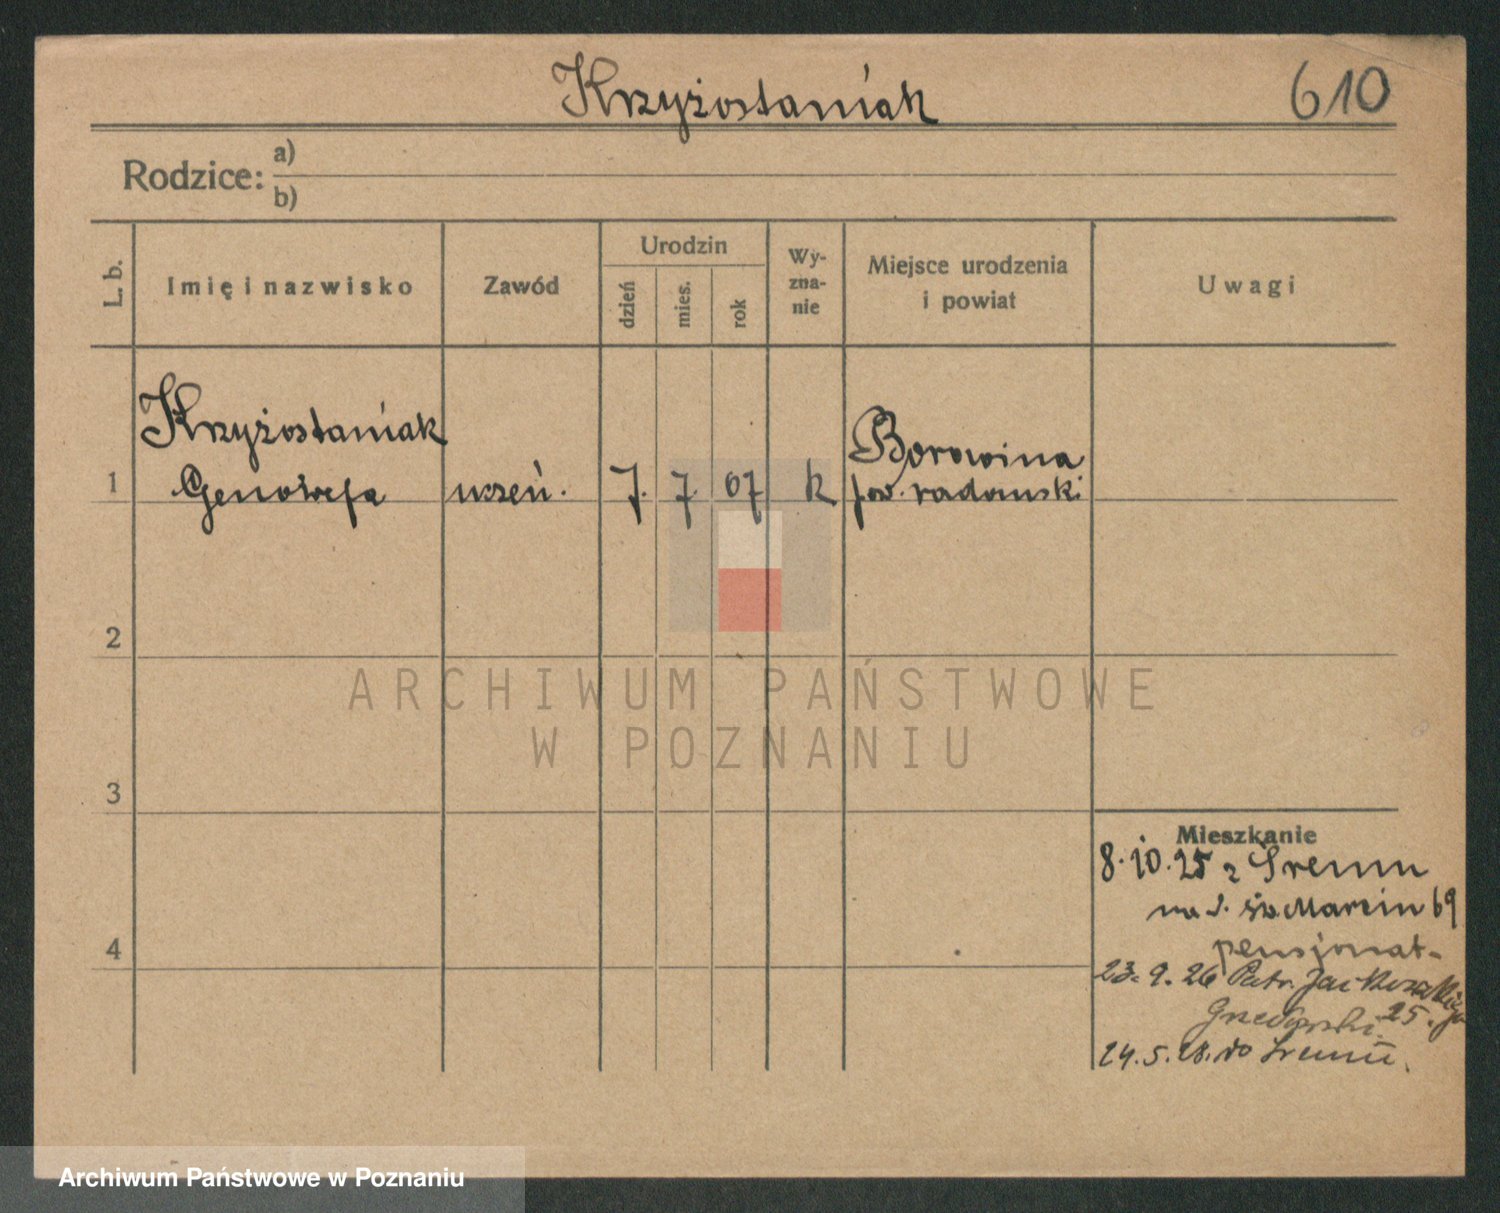 Krzyżostaniak
610
Rodzice:
a)
b)
L. b.
Imię i nazwisko
Zawód
Urodzin
dzień
mies.
rok
Wy-
zna-
nie
Miejsce urodzenia
i powiat
Uwagi
Krzyżostaniak
Borowina
1 Genowefa uczeń. 7. 7 07 k pow. radomski
2
ARCHIWUM PAŃSTWOWE
W POZNANIU
3
Mieszkanie
8.10.25 z Śremu
na św Marcin 69
4
pensjonat
23.9.26 Patr. Jackowskiego
25.
24.5.28. do Śremu.
Archiwum Państwowe w Poznaniu